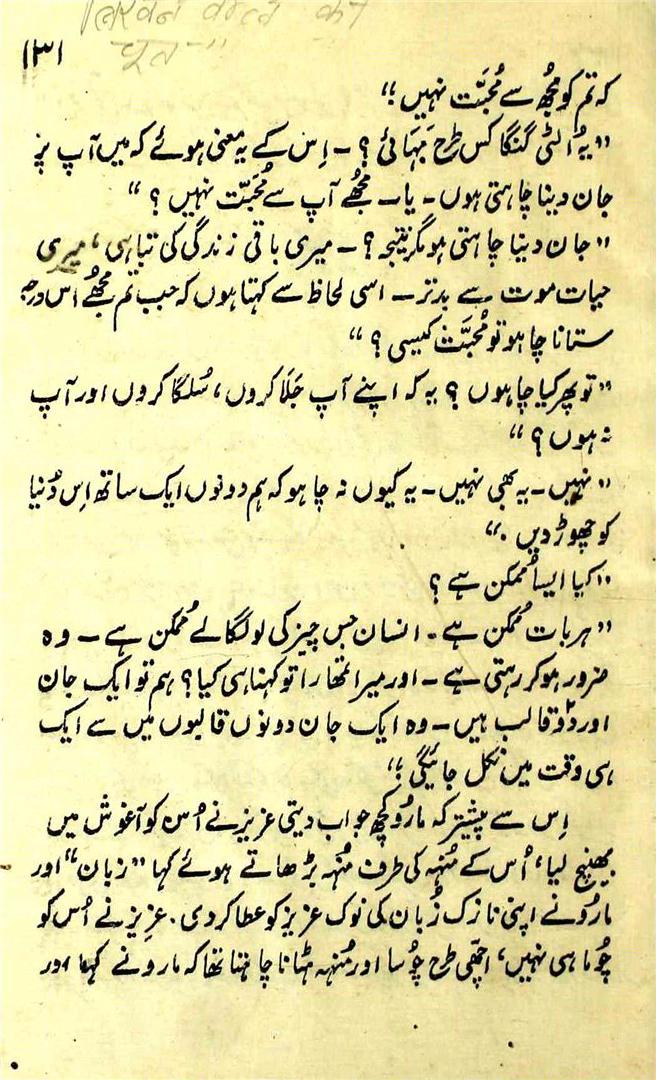 लिखने वाले की
चूत
۱۳۱
کہ تم کو مجھ سے مُحبَّت نہیں ؛“
”یہ اُلٹی گنگا کس طرح بَہائی ؟ ۔ اِس کے یہ معنی ہوئے کہ میں آپ پر
جان دینا چاہتی ہوں ۔ یا ۔ مجھُے آپ سے مُحَبَّت نہیں ؟ “
”جان دینا چاہتی ہو مگر نتیجہ ؟ ۔ میری باقی زندگی کی تباہی ، میری
حیات موت سے بدتر ۔ اسی لحاظ سے کہتا ہوں کہ جب تم مجھُے اس درجہ
ستانا چاہو تو مُحبَّت کیسی ؟ “
”تو پھر کیا چاہوں ؟ یہ کہ اپنے آپ جَلا کروں ، سُلگا کروں اور آپ
نہ ہوں ؟ “
”نہیں ۔ یہ بھی نہیں ۔ یہ کیوں نہ چاہو کہ ہم دونوں ایک ساتھ اِس دُنیا
کو چھوڑ دیں ۔“
”کیا ایسا مُمکن ہے ؟
”ہر بات مُمکن ہے ۔ انسان جس چیز کی لو لگالے مُمکن ہے ۔ وہ
ضرور ہو کر رہتی ہے ۔ اور میرا تمھارا تو کہنا ہی کیا ؟ ہم تو ایک جان
اور دو قالب ہیں ۔ وہ ایک جان دونوں قالبوں میں سے ایک
ہی وقت میں نکل جائیگی ؛“
اِس سے پیشتر کہ مارُو کچھ جواب دیتی عزیز نے اُس کو آغوش میں
بھینچ لیا ، اُس کے مُنہہ کی طرف مُنہہ بڑھاتے ہوئے کہا ”زبان“ اور
مارُو نے اپنی نازک زُبان کی نوک عزیز کو عطا کردی ۔ عزیز نے اُس کو
چُوما ہی نہیں ، اچھّی طرح چُوسا اور مُنہہ ہٹانا چاہتا تھا کہ مارو نے کہا اور